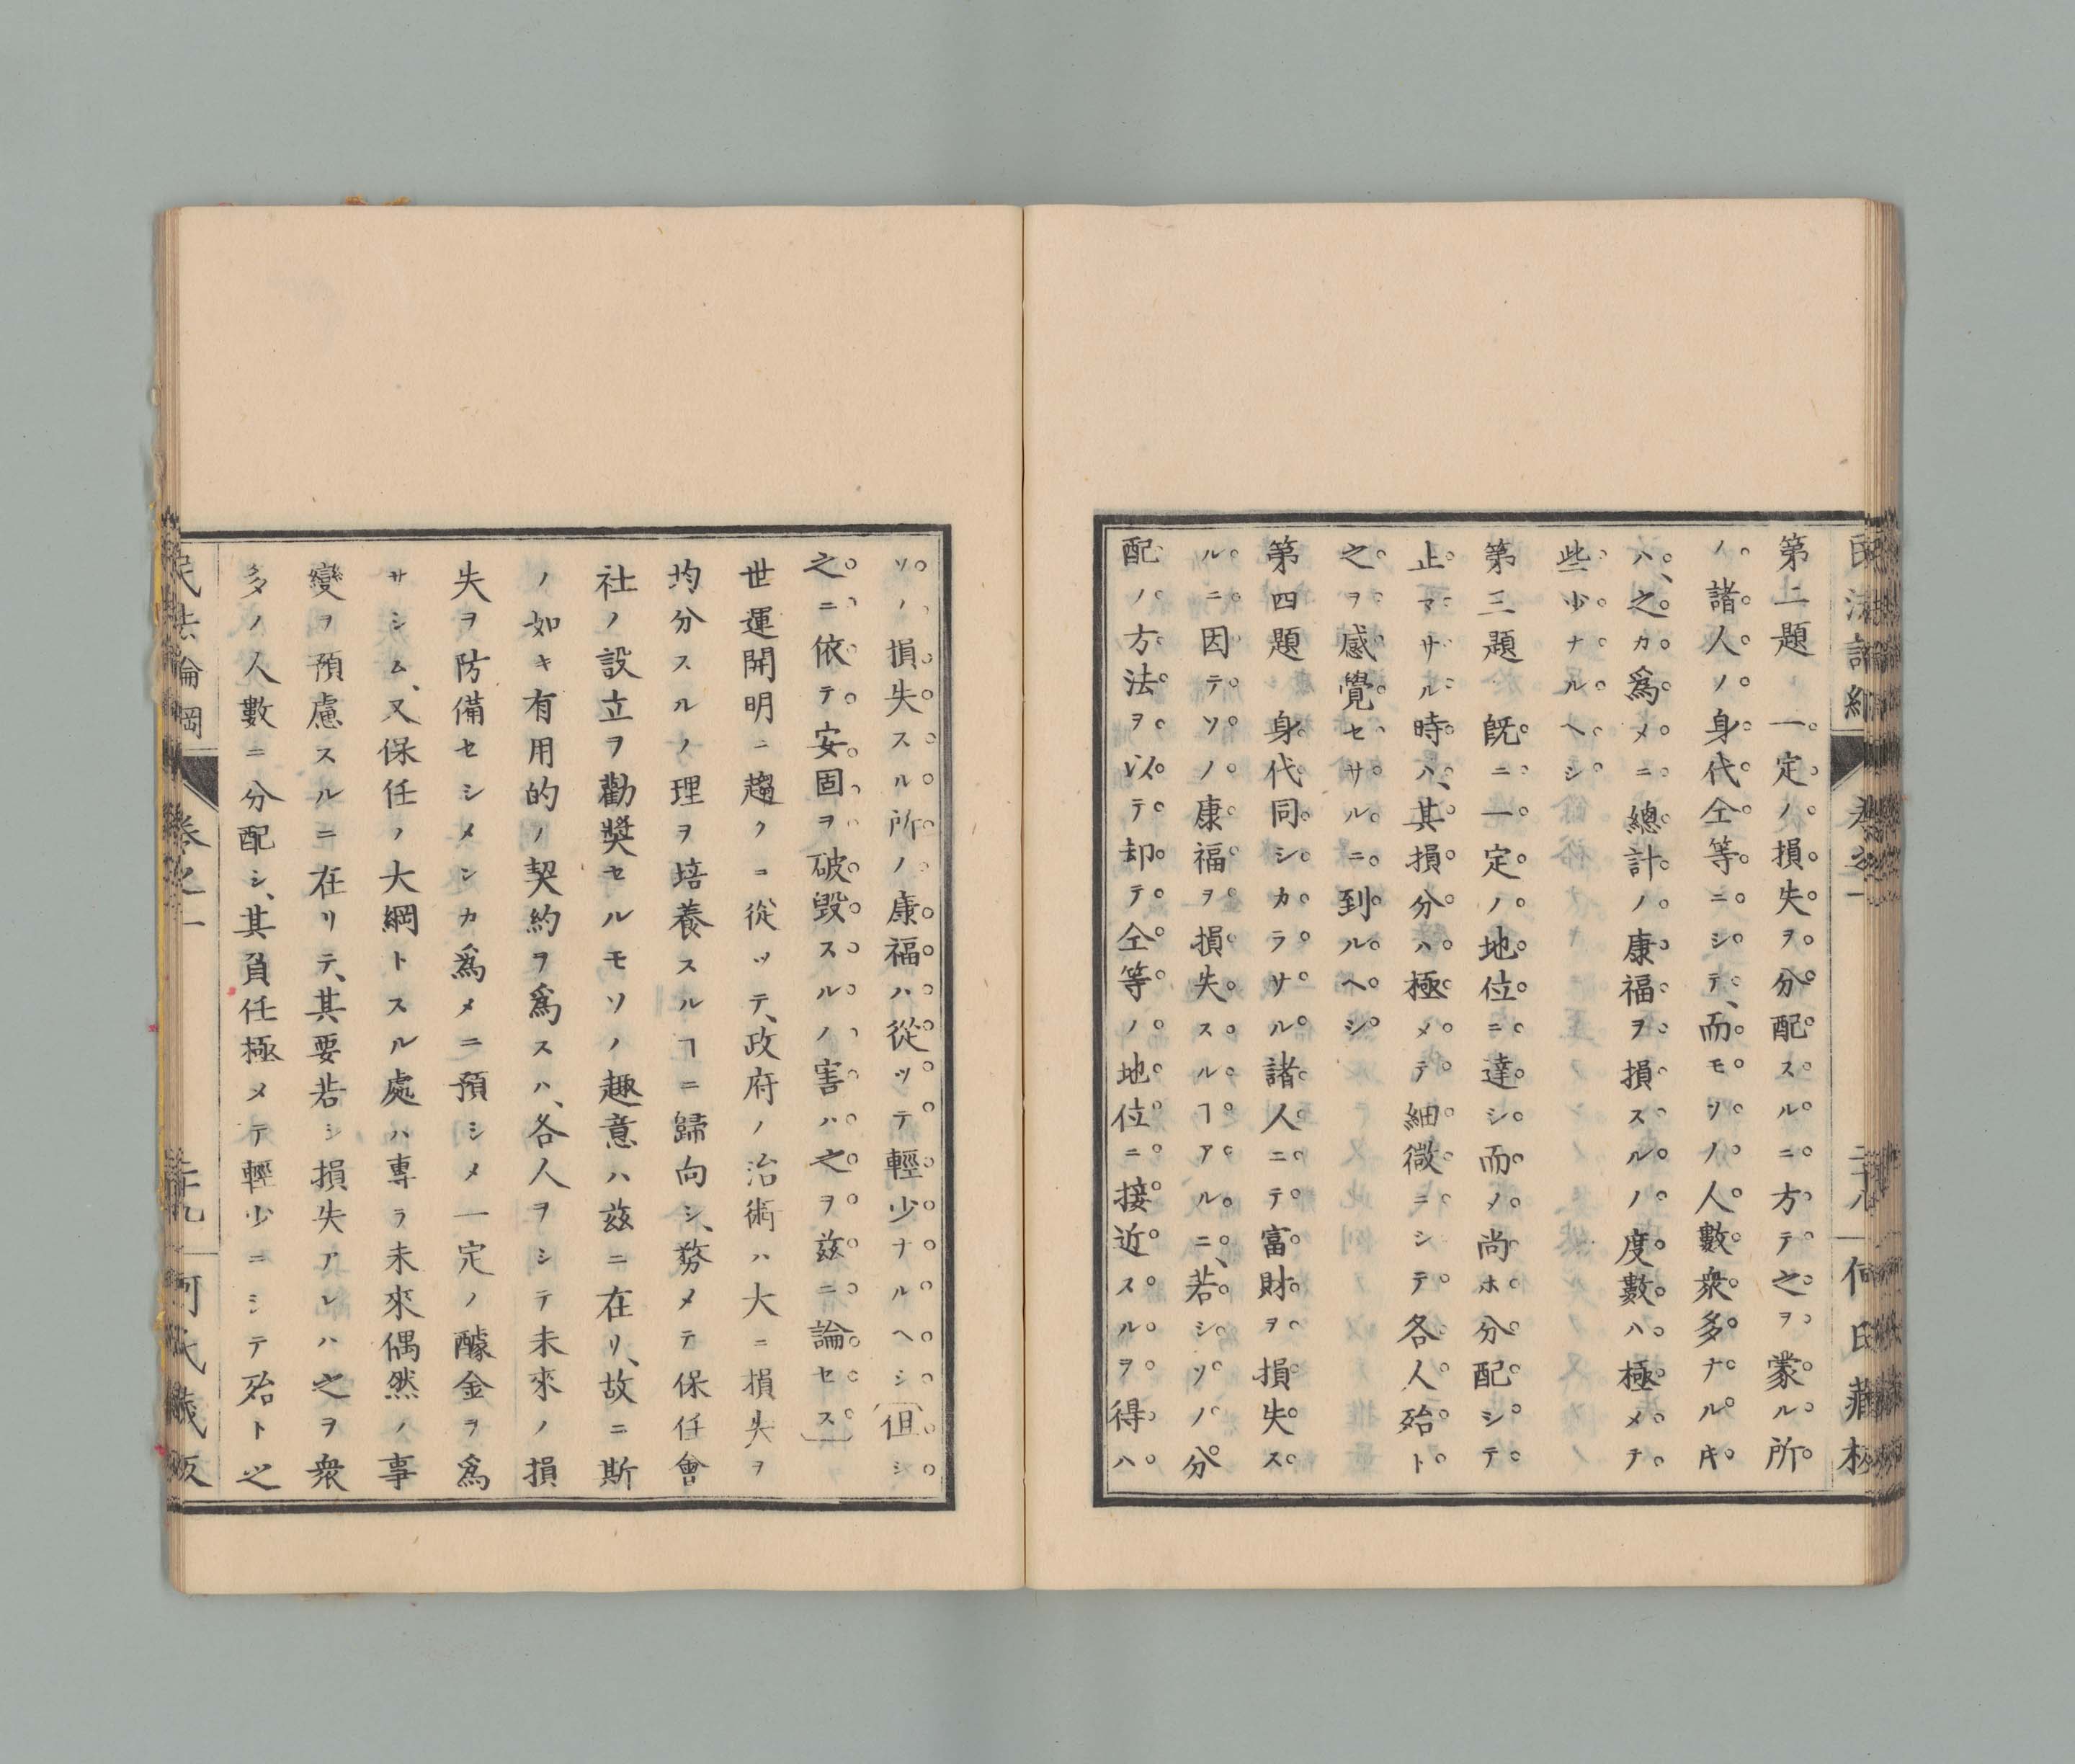 第二題 一定ノ損失ヲ分配スルニ方テ之ヲ蒙ル所
ノ諸人ノ身代仝等ニシテ、而モソノ人數衆多ナルキ
ハ、之カ爲メニ總計ノ康福ヲ損スルノ度數ハ極メテ
些少ナルヘシ
第三題 既ニ一定ノ地位ニ達シ而ノ尚ホ分配シテ
止マサル時ハ、其損分ハ極メテ細微ニシテ各人殆ト
之ヲ感覺セサルニ到ルヘシ
第四題 身代同シカラサル諸人ニテ富財ヲ損失ス
ルニ因テソノ康福ヲ損失スルヿアルニ、若シソノ分
配ノ方法ヲ以テ却テ仝等ノ地位ニ接近スルヲ得ハ
ソノ損失スル所ノ康福ハ從ツテ輕少ナルヘシ(但シ
之ニ依テ安固ヲ破毀スルノ害ハ之ヲ茲ニ論セス)
世運開明ニ趨クニ從ツテ、政府ノ治術ハ大ニ損失ヲ
均分スルノ理ヲ培養スルヿニ歸向シ、務メテ保任會
社ノ設立ヲ勸奬セルモソノ趣意ハ茲ニ在リ、故ニ斯
ノ如キ有用的ノ契約ヲ爲スハ、各人ヲシテ未來ノ損
失ヲ防備セシメンカ爲メニ預シメ一定ノ醵金ヲ爲
サシム、又保任ノ大綱トスル處ハ專ラ未來偶然ノ事
變ヲ預慮スルニ在リテ、其要若シ損失アレハ之ヲ衆
多ノ人數ニ分配シ、其負任極メテ輕少ニシテ殆ト之
民法論綱 卷之一 二十九 何氏藏版